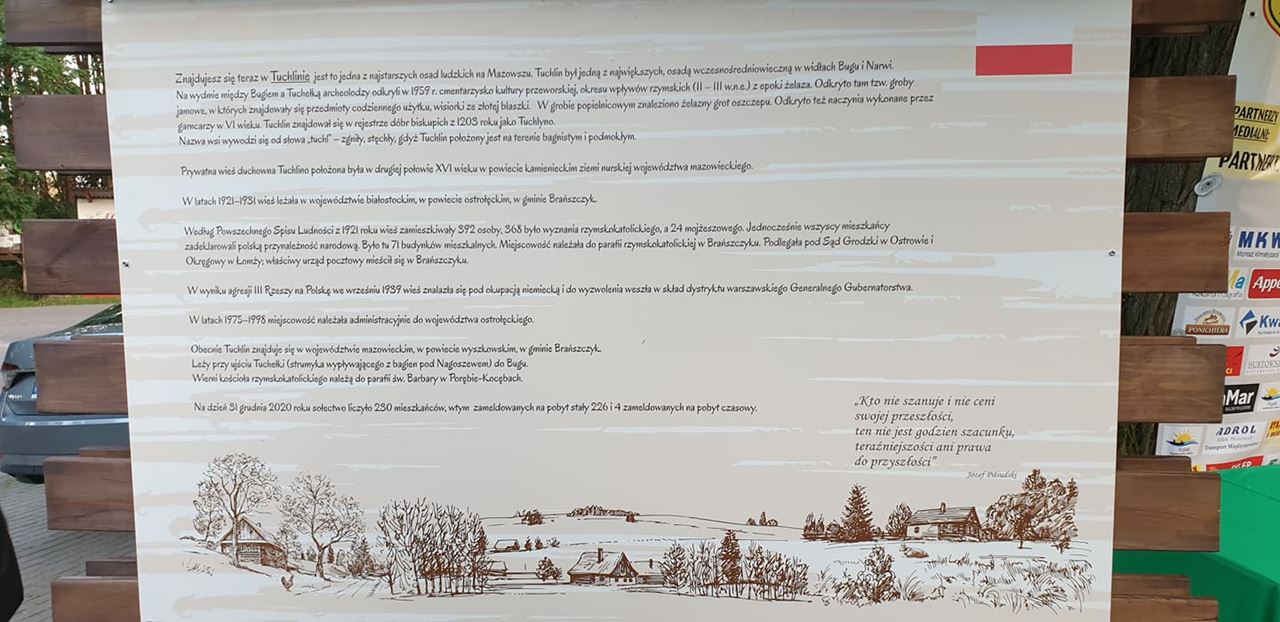 Znajdujesz się teraz w Tuchlinie jest to jedna z najstarszych osad ludzkich na Mazowszu. Tuchlin był jedną z największych, osadą wczesnośredniowieczną w widłach Bugu i Narwi.
Na wydmie między Bugiem a Tuchełką archeolodzy odkryli w 1959 r. cmentarzysko kultury przeworskiej, okresu wpływów rzymskich (II – III w.n.e.) z epoki żelaza. Odkryto tam tzw. groby
jamowe, w których znajdowały się przedmioty codziennego użytku, wisiorki ze złotej blaszki. W grobie popielnicowym znaleziono żelazny grot oszczepu. Odkryto też naczynia wykonane przez
garncarzy w VI wieku. Tuchlin znajdował się w rejestrze dóbr biskupich z 1203 roku jako Tuchlyno.
Nazwa wsi wywodzi się od słowa „tuchl” – zgniły, stęchły, gdyż Tuchlin położony jest na terenie bagnistym i podmokłym.
Prywatna wieś duchowna Tuchlino położona była w drugiej połowie XVI wieku w powiecie kamienieckim ziemi nurskiej województwa mazowieckiego.
W latach 1921–1931 wieś leżała w województwie białostockim, w powiecie ostrołęckim, w gminie Brańszczyk.
Według Powszechnego Spisu Ludności z 1921 roku wieś zamieszkiwały 392 osoby, 368 było wyznania rzymskokatolickiego, a 24 mojżeszowego. Jednocześnie wszyscy mieszkańcy
zadeklarowali polską przynależność narodową. Było tu 71 budynków mieszkalnych. Miejscowość należała do parafii rzymskokatolickiej w Brańszczyku. Podlegała pod Sąd Grodzki w Ostrowie i
Okręgowy w Łomży; właściwy urząd pocztowy mieścił się w Brańszczyku.
W wyniku agresji III Rzeszy na Polskę we wrześniu 1939 wieś znalazła się pod okupacją niemiecką i do wyzwolenia weszła w skład dystryktu warszawskiego Generalnego Gubernatorstwa.
W latach 1975–1998 miejscowość należała administracyjnie do województwa ostrołęckiego.
Obecnie Tuchlin znajduje się w województwie mazowieckim, w powiecie wyszkowskim, w gminie Brańszczyk.
Leży przy ujściu Tuchełki (strumyka wypływającego z bagien pod Nagoszewem) do Bugu.
Wierni kościoła rzymskokatolickiego należą do parafii św. Barbary w Porębie-Kocębach.
Na dzień 31 grudnia 2020 roku sołectwo liczyło 230 mieszkańców, wtym zameldowanych na pobyt stały 226 i 4 zameldowanych na pobyt czasowy.
„Kto nie szanuje i nie ceni
swojej przeszłości,
ten nie jest godzien szacunku,
teraźniejszości ani prawa
do przyszłości”
Józef Piłsudski
PARTNERZY
MEDIALNE
PARTNER
MKW
Appe
PONICHTERA
Kwa
HURTOWNI
Mar
ADROL